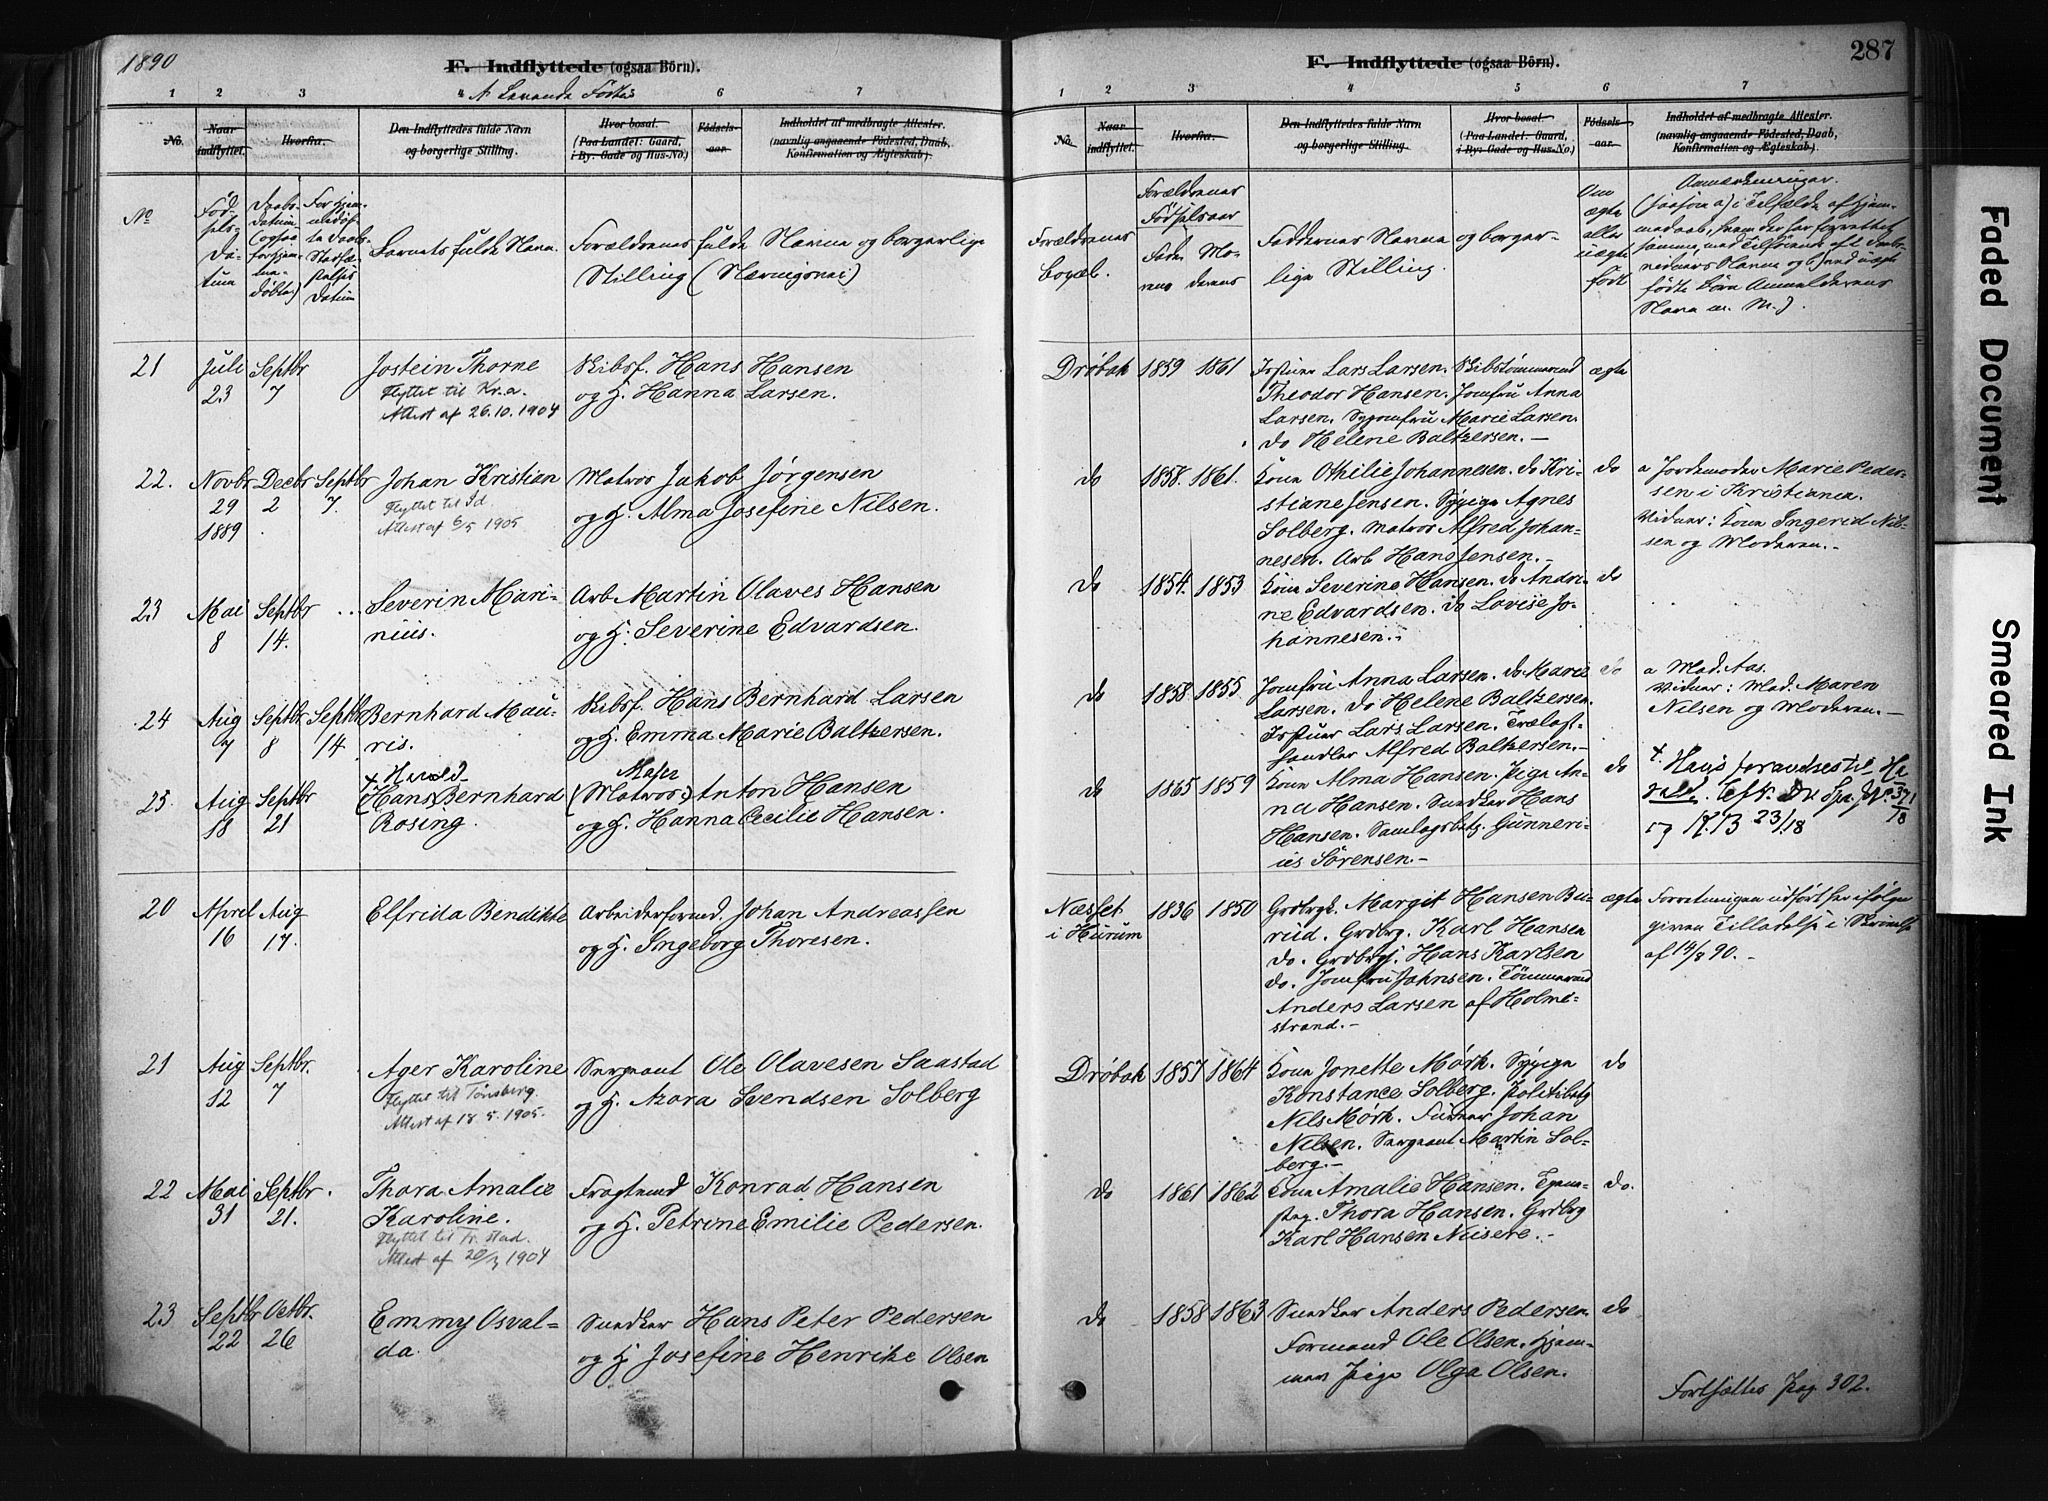 1890
F. Indflyttede (ogsaa Börn).
A. Levende Fødte
1 2 3 4 6 7
No.
Naar indflyttet.
Hvorfra.
Den Indflyttedes fulde Navn og borgerlige Stilling.
Hvor bosat. (Paa Landet: Gaard, i By: Gade og Hus-No.)
Födsels-aar.
Indholdet af medbragte Attester. (navnlig angaaende Födested, Daab, Konfirmation og Ægteskab.)
No
Fødselsdatum
Daabsdatum (ogsaa for hjemmedøbte)
Barnets fulde Navn.
Forældrenes fulde Navne og borgerlige
Stilling (Næringsvei)
21 Juli 23 Septbr 7
Jostein Thorne
Flyttet til Kr.a.
Attest af 26.10.1904
Skibsf. Hans Hansen
og H. Hanna Larsen.
22. Novbr 29 1889 Decbr 2 Septbr 7.
Johan Kristian
Flyttet til Id.
Attest af 6/5 1905
Matros Jakob Jørgensen
og H. Alma Josefine Nilsen.
23 Mai 8 Septbr 14.
Severin Mari-
nius.
Arb Martin Olaves Hansen
og H. Severine Edvardsen.
24 Aug 7 Septbr 8 Septbr 14
Bernhard Mau-
ris.
Skibsf. Hans Bernhard Larsen
og H. Emma Marie Baltzersen.
25. Aug 18 Septbr 21
+ Harald
(Hans) Bernhard
Rosing.
(Matros) Anton Hansen
og H. Hanna Cecilie Hansen.
20 April 16 Aug 17.
Elfrida Bendikte
Arbeiderformd. Johan Andreassen
og H. Ingeborg Thoresen.
21 Aug 12 Septbr. 7
Ager Karoline
Flyttet til Tønsberg.
Attest af 18.5.1905.
Sergeant Ole Olavesen Saastad
og H. Azora Svendsen Solberg
22 Mai 31 Septbr. 21.
Thora Amalie
Karoline.
Flyttet til Fr.stad.
Attest af 20/3 1904
Fragtmd Konrad Hansen
og H. Petrine Emilie Pedersen.
23 Septbr 22 Octbr. 26
Emmy Osval-
da.
Snedker Hans Peter Pedersen
og H Josefine Henrike Olsen
F. Indflyttede (ogsaa Börn).
287
1 2 3 4 5 6 7
No.
Naar indflyttet.
Hvorfra.
Den Indflyttedes fulde Navn og borgerlige Stilling.
Hvor bosat. (Paa Landet: Gaard, i By: Gade og Hus-No.)
Födsels-aar.
Indholdet af medbragte Attester. (navnlig angaaende Födested, Daab, Konfirmation og Ægteskab.)
Forældrenes
Bopæl.
Forældrenes
Fødselsaar
Faderens Moderens
Faddernes Navne og borger-
lige Stilling.
Om ægte eller uægte født
Anmærkninger.
Drøbak 1859 1861
Lars Larsen. Skibstømmermd
Theodor Hansen. Jomfru Anna
Larsen. Syjomfru Marie Larsen.
do Helene Baltzersen. –
ægte
do 1858. 1861.
Kone Othilie Johannesen. do Kri-
stiane Jensen. Sypige Agnes
Solberg. Matros Alfred Johan-
nesen. Arb Hans Jensen. –
do
a Jordemoder Marie Peder-
sen i Kristiania.
Vidner: Kone Ingerid Nil-
sen og Moderen. –
do 1854. 1853
Kone Severine Hansen. do Andri-
ne Edvardsen. do Lovise Jo-
hannesen. –
do
do 1858. 1855.
Jomfru Anna Larsen. do Marie
Larsen. do Helene Baltzersen.
Lars Larsen. Trælast-
handler Alfred Baltzersen. –
do
a Mad. Aas.
Vidner: Mad. Maren
Nilsen og Moderen. –
do 1865 1859
Kone Alma Hansen. Pige An-
na Hansen. Snedker Hans
Hansen. Samlagsbest. Gunneri-
us Sørensen. –
do
+. Hans forandres til Ha
rald.
og 17.13 23/18
Næsset
i Hurum
1836 1850
Grdbrgk. Margit Hansen Bu-
rud. Grdbrg. Karl Hansen
do. Grdbrgs. Hans Karlsen
do. Jomfru Johnsen. Tømmermd
Anders Larsen af Holme-
strand. –
ægte
Forretningen udført her ifølge
given Tilladelse i Skrivelse
af 14/8 90. –
Drøbak 1857 1864
Kone Jonette Mørk. Sypige
Konstance Solberg. Politibetj
Nils Mørk. Johan
Nilsen. Sergeant Martin Sol-
berg. –
do
do 1861 1862
Kone Amalie Hansen. Tjene-
stepg. Thora Hansen. Grdbrg
Karl Hansen Niisere. –
do.
do 1858 1863
Snedker Anders Pedersen.
Formand Ole Olsen. Hjem-
mev. Pige Olga Olsen.
do
Fortsættes Pag. 302.
Faded Document
Smeared Ink